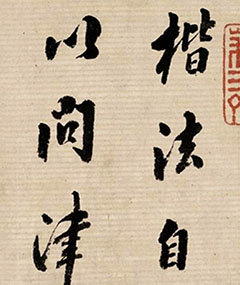 楷法自
以问津